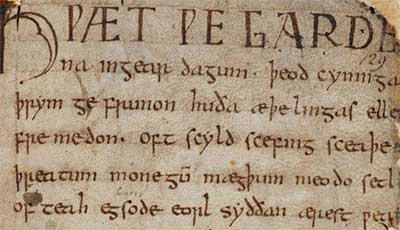 HǷÆT ǷE GARDE
na ingear dagum . þeod cyninga
þrym ge frunon huða æþelingas elle
fre medon . oft scyld scefing sceaþe
þreatum monegū mægþum meodo setl
of teah egsode eorl syððan ærest